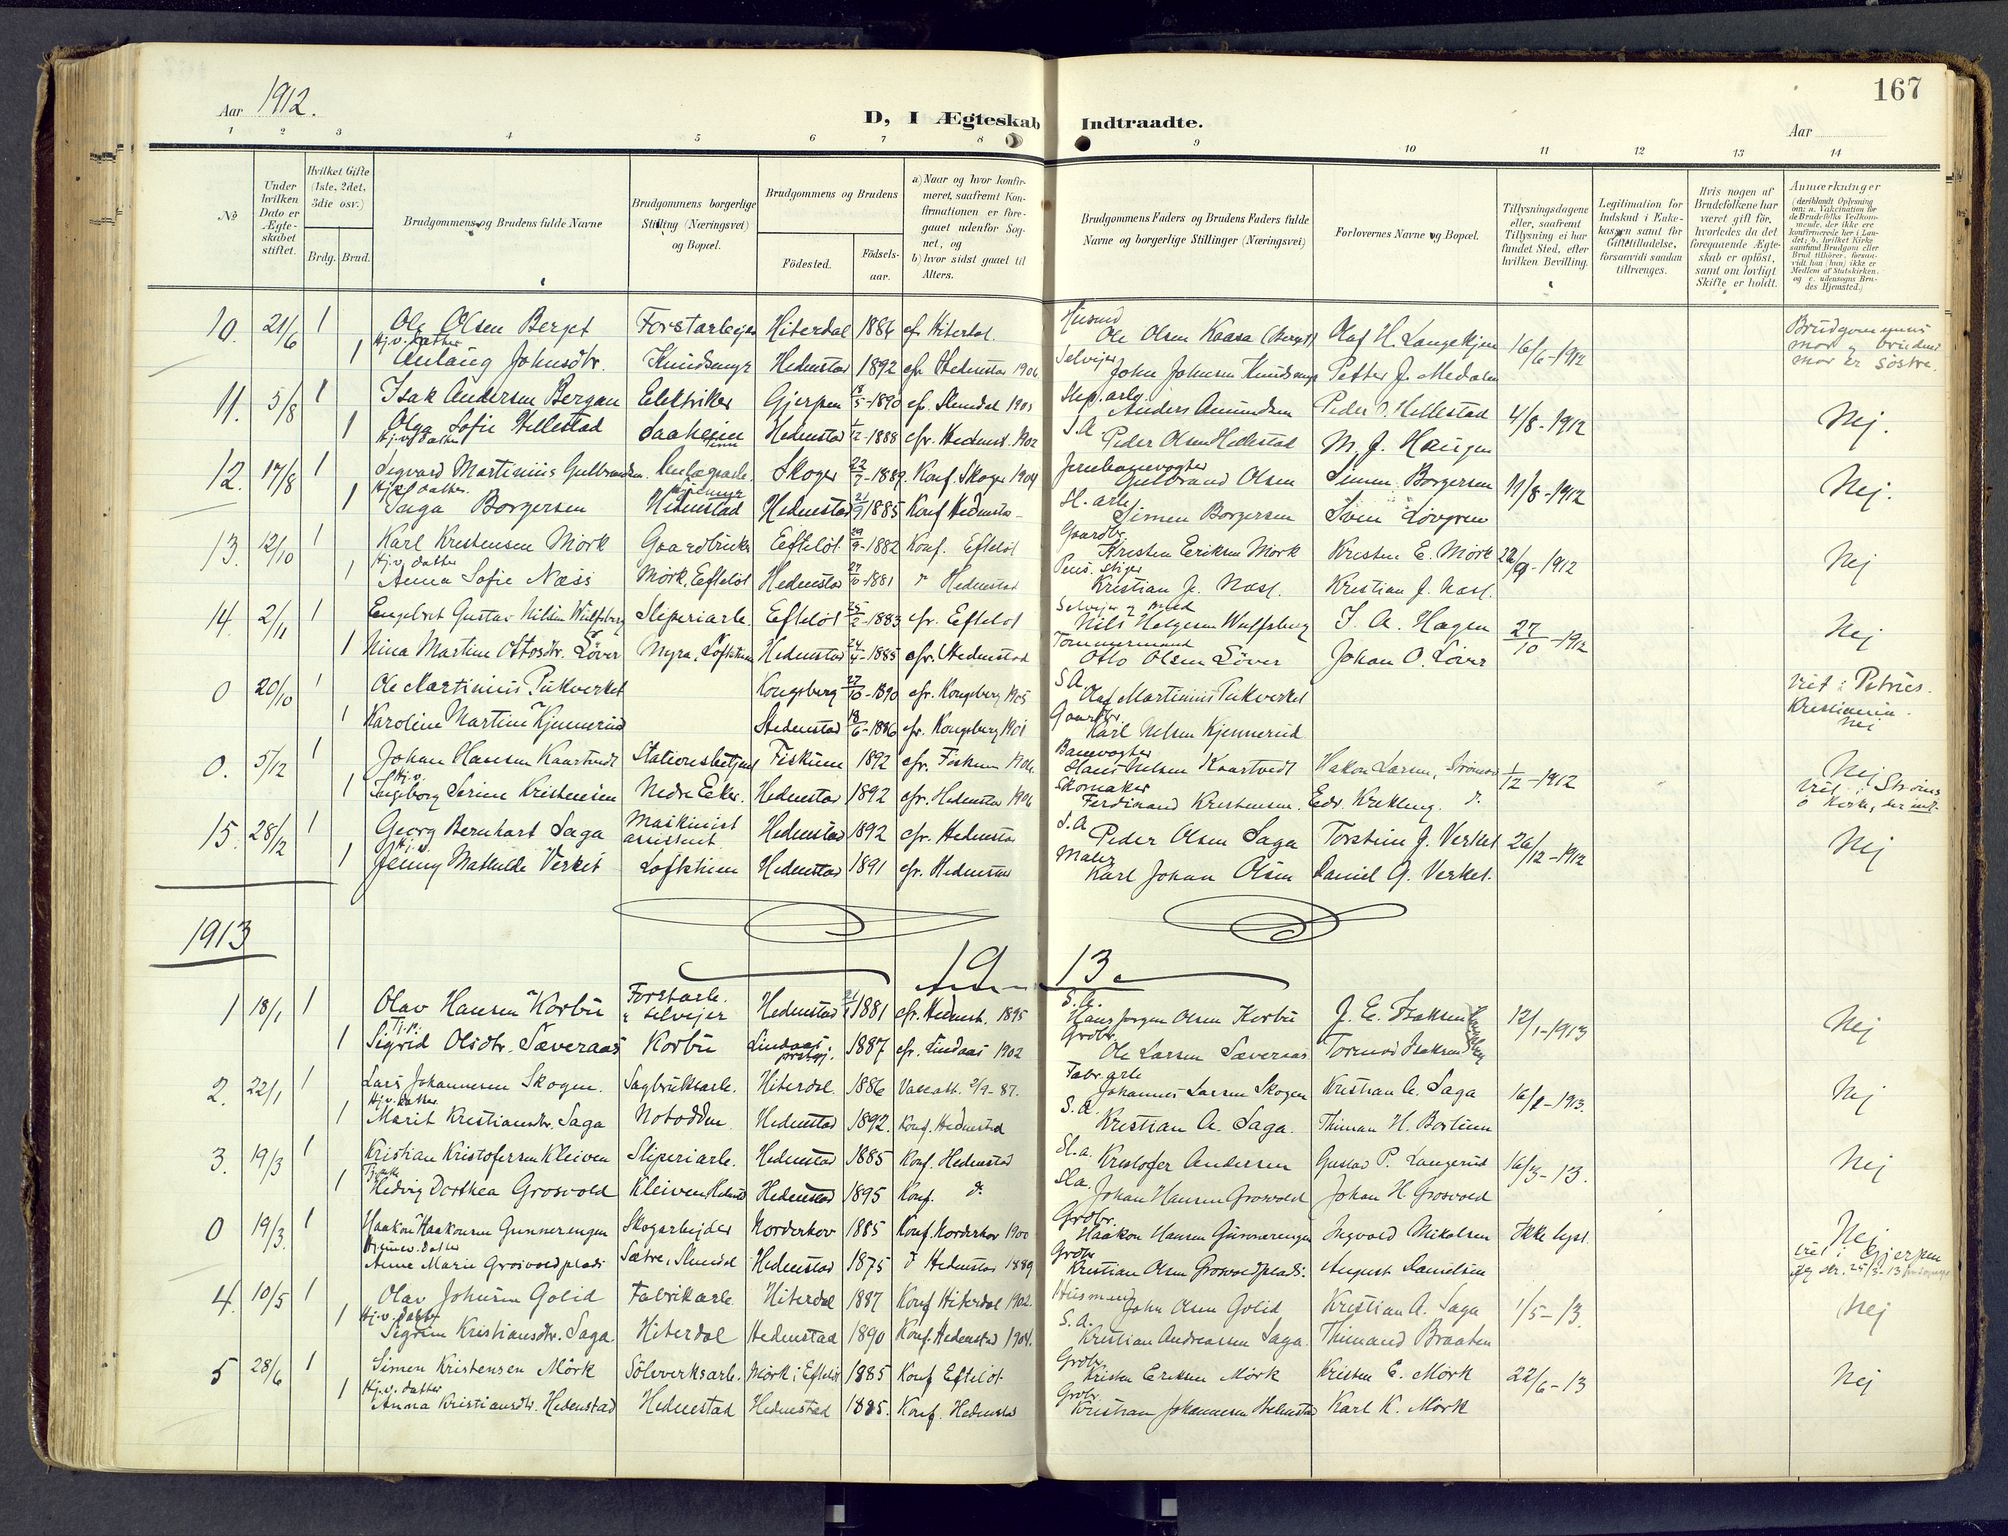 167
Aar 1912.
D, I Ægteskab Indtraadte.
Aar
1 2 3 4 5 6 7 8 9 10 11 12 13 14
No
Under hvilken Dato er Ægteskabet stiftet.
Hvilket Gifte (1ste, 2det, 3die osv.)
Brdg. Brud.
Brudgommens og Brudens fulde Navne
Brudgommens borgerlige Stilling (Næringsvei) og Bopæl.
Brudgommens og Brudens
Födested. Födselsaar.
a) Naar og hvor konfirmeret, saafremt Konfirmationen er foregaaet udenför Sognet, og b) hvor sidst gaaet til Alters.
Brudgommens Faders og Brudens Faders fulde Navne og borgerlige Stillinger (Næringsvei)
Forlovernes Navne og Bopæl.
Tillysningsdagene eller, saafremt Tillysning ei har fundet Sted, efter hvilken Bevilling.
Legitimation for Indskud i Enkekassen samt for Giftetilladelse, forsaavidt saadan tiltrænges.
Hvis nogen af Brudefolkene har været gift för, hvorledes da det foregaaende Ægteskab er oplöst, samt om lovligt Skifte er holdt.
Anmærkninger (deriblandt Oplysning om: a. Vakcination for de Brudefolks Vedkommende, der ikke ere konfirmerede her i Landet; b. hvilket Kirkesamfund Brudgom eller Brud tilhörer, forsaavidt han (hun) ikke er Medlem af Statskirken, og c. udensogns Brudes Hjemsted.)
10. 21/6 1 Ole Olsen Berget Forstarbejder Hiterdal 1886 cfr. Hiterdal. Husmd Ole Olsen Kaasa (Berget) Olaf H. Langekjen 16/6-1912 Brudgommens mor og brudens mor er søstre.
Hj.v. datter
1 Anlaug Johnsdtr. Knudsmyr Hedenstad 1892 cfr. Hedenstad 1906 Selvejer John Johnsen Knudsmyr Petter J. Medalen
11. 5/8 1 Isak Andersen Bergan Elektriker Gjerpen 18/5-1890 cfr. Skeidal 1905 Anders Amundsen Peder O. Hellestad 4/8-1912 Nej.
1 Olga Sofie Hellestad Saaheim Hedenstad 1/12-1888 cfr. Hedenst. 1902 S.A Peder Olsen Hellestad M. J. Haugen
Hj.v. datter
12. 17/8 1 Sigvard Martinius Gulbrandsen. Skoger 22/7-1889. Konf. Skoger 1904 Jernbanevogter Gulbrand Olsen Simen Borgersen 11/8-1912 Nej.
1 Saga Borgersen Hedenstad Hedenstad 21/9 1885 Konf Hedenstad Simen Borgersen Sven Løvgren
13. 12/10 1 Karl Kristensen Mørk Gaardbruker Eftelöt 29/9-1882 Konf. Eftelöt Gaardbr. Kristen Eriksen Mørk Kristen E. Mørk 22/9-1912 Nej
Hj.v. datter
1 Anna Sofie Næss Mørk Eftelöt Hedenstad 1881 " Hedenstad Pens. stiger Kristian J. Næss. Kristian J. Næss.
14. 2/11 1 Engebret Gustav Nilsen Wulfsberg Sliperiarb. Eftelöt 25/2-1883 cfr. Eftelöt Nils Helgesen Wulfsberg I. A. Hagen 27/10-1912 Nej
1 Nina Martine Ottosdtr. Løver Myra, Loftsthun Hedenstad 24/4-1885 cfr. Hedenstad Tømmermand Otto Olsen Løver Johan O. Løver
0 20/10 1 Ole Martinius Pukverket Kongsberg 27/10-1890 cfr. Kongsberg 1905 S.A Olaf Martinius Pukverket Viet i Petrus Kristiania. Nej
1 Karoline Martine Kjennerud Hedenstad 18/6-1886 cfr. Kongsberg 1901 Gaardbr. Karl Nilsen Kjennerud
0. 5/12 1 Johan Hansen Kaartvedt Stationsbetjent Fiskum 1892 cfr. Fiskum 1906. Banevogter Hans Nilsen Kaartvedt Hakon Larsen, 1/12-1912 Nej
Hj.v.
1 Ingeborg Serine Kristensen Nedre Eker. Hedenstad 1892 cfr. Hedenstad 1906 Skomaker Ferdinand Kristensen. Edv. Krekling. d.
15. 28/12 1 Georg Bernhart Saga Maskinist assistent. Hedenstad 1892 cfr. Hedenstad S.A Peder Olsen Saga Torstein J. Verket 26/12-1912 Nej
Hj.v.
1 Jenny Mathilde Verket Loftsthun Hedenstad 1891 cfr. Hedenstad Maler Karl Johan Olsen Daniel G. Verket.
1913
1913.
1 18/1 1 Olav Hansen Korbu Forstarb. & selvejer Hedenstad 1881 cfr. Hedenst. 1895 S.A. Hans Jørgen Olsen Korbu J. E. Isaksen 12/1-1913 Nej
Tj.p.
1 Sigrid Olsdtr. Sæveraas Korbu Lindaas prstgj. 1887 cfr. Lindaas 1902 Grdbr. Ole Larsen Sæveraas Tormod Isaksen
2. 22/1 1 Lars Johannesen Skogen. Sagbruksarb. Hiterdal. 1886 Vaccatt. 2/9-87. Fabr. arb Johannes Larsen Skogen Kristian A. Saga 16/1-1913. Nej
Hj.v. datter
1 Marit Kristiansdtr. Saga Notodden Hedenstad 1892. Konf. Hedenstad S.a. Kristian A. Saga. Thiman H. Bostuen
3. 19/3 1 Kristian Kristofersen Kleiven Sliperiarb. Hedenstad 1885 Konf. Hedenstad Sl.a. Kristofer Andersen Gustav P. Langerud 16/3-13. Nej
1 Hedvig Dorthea Grosvold Kleiven Hedenstad Hedenstad 1895 Konf. d. Sl.a. Johan Hansen Grosvold Johan H. Grosvold
0 19/3. 1 Haakon Haakonsen Gunnerengen Skogarbejder Norderhov 1885 Konf. Norderhov 1900 Grdbr. Haakon Hansen Gunnerengen Ingvald Mikalsen Ikke lyst. Nej viet i Gjerpen
Hjemv. datter
Anne Marie Grosvoldplads Sætre, Skeidal Hedenstad 1875 d Hedenstad 1889 Grdbr Kristian Olsen Grosvoldplads. August Danielsen
4. 10/5 1 Olav Johnsen Golid Fabrikarb. Hiterdal 1887 Konf Hiterdal 1902. Husmand John Olsen Golid Kristian A. Saga 1/5-13. Nej
Hj.v. datter
1 Sigrun Kristiansdtr. Saga Hiterdal Hedenstad 1890 Konf. Hedenstad 1904. S.a. Kristian Andreassen Saga. Thimand Braaten
5 28/6 1 Simen Kristensen Mörk Sölvverksarb. Mørk i Eftelöt 1885 Konf Eftelöt Grdbr Kristen Eriksen Mörk Kristen E. Mörk 22/6-13 Nej
Hj.v. datter
1 Anna Kristiansdtr. Hedenstad Hedenstad Hedenstad 1885. Konf. Hedenstad Grdbr. Kristian Johannesen Hedenstad Karl K. Mørk